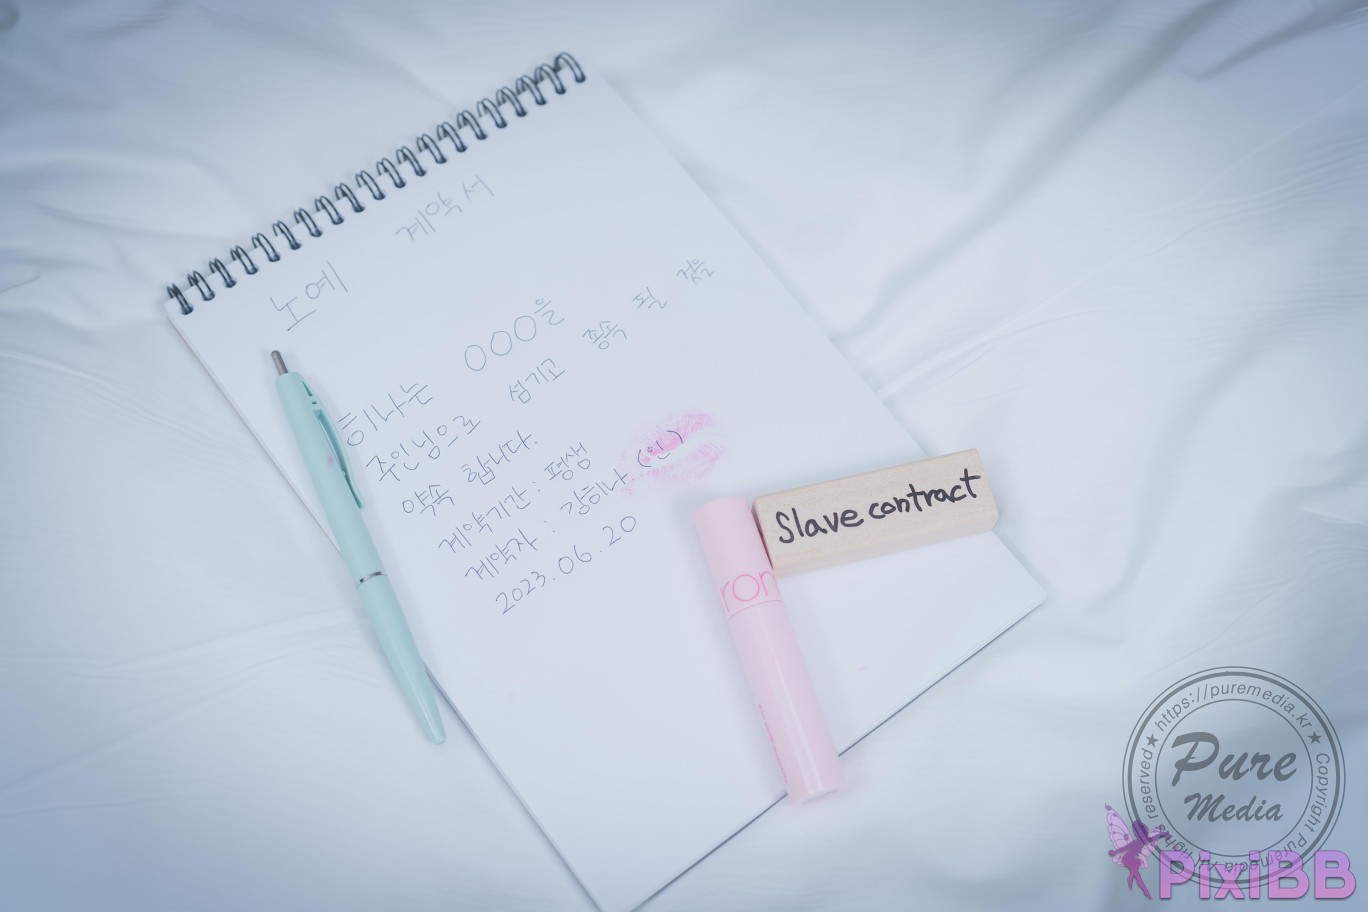 노예 계약서
히나는 OOO을
주인님으로 섬기고 종속 될 것을
약속 합니다.
계약기간 : 평생
계약자 : 강히나 (인)
2023.06.20
Slave contract
rom
https://puremedia.kr
Pure
Media
Copyright Puremedia All rights reserved
PixiBB